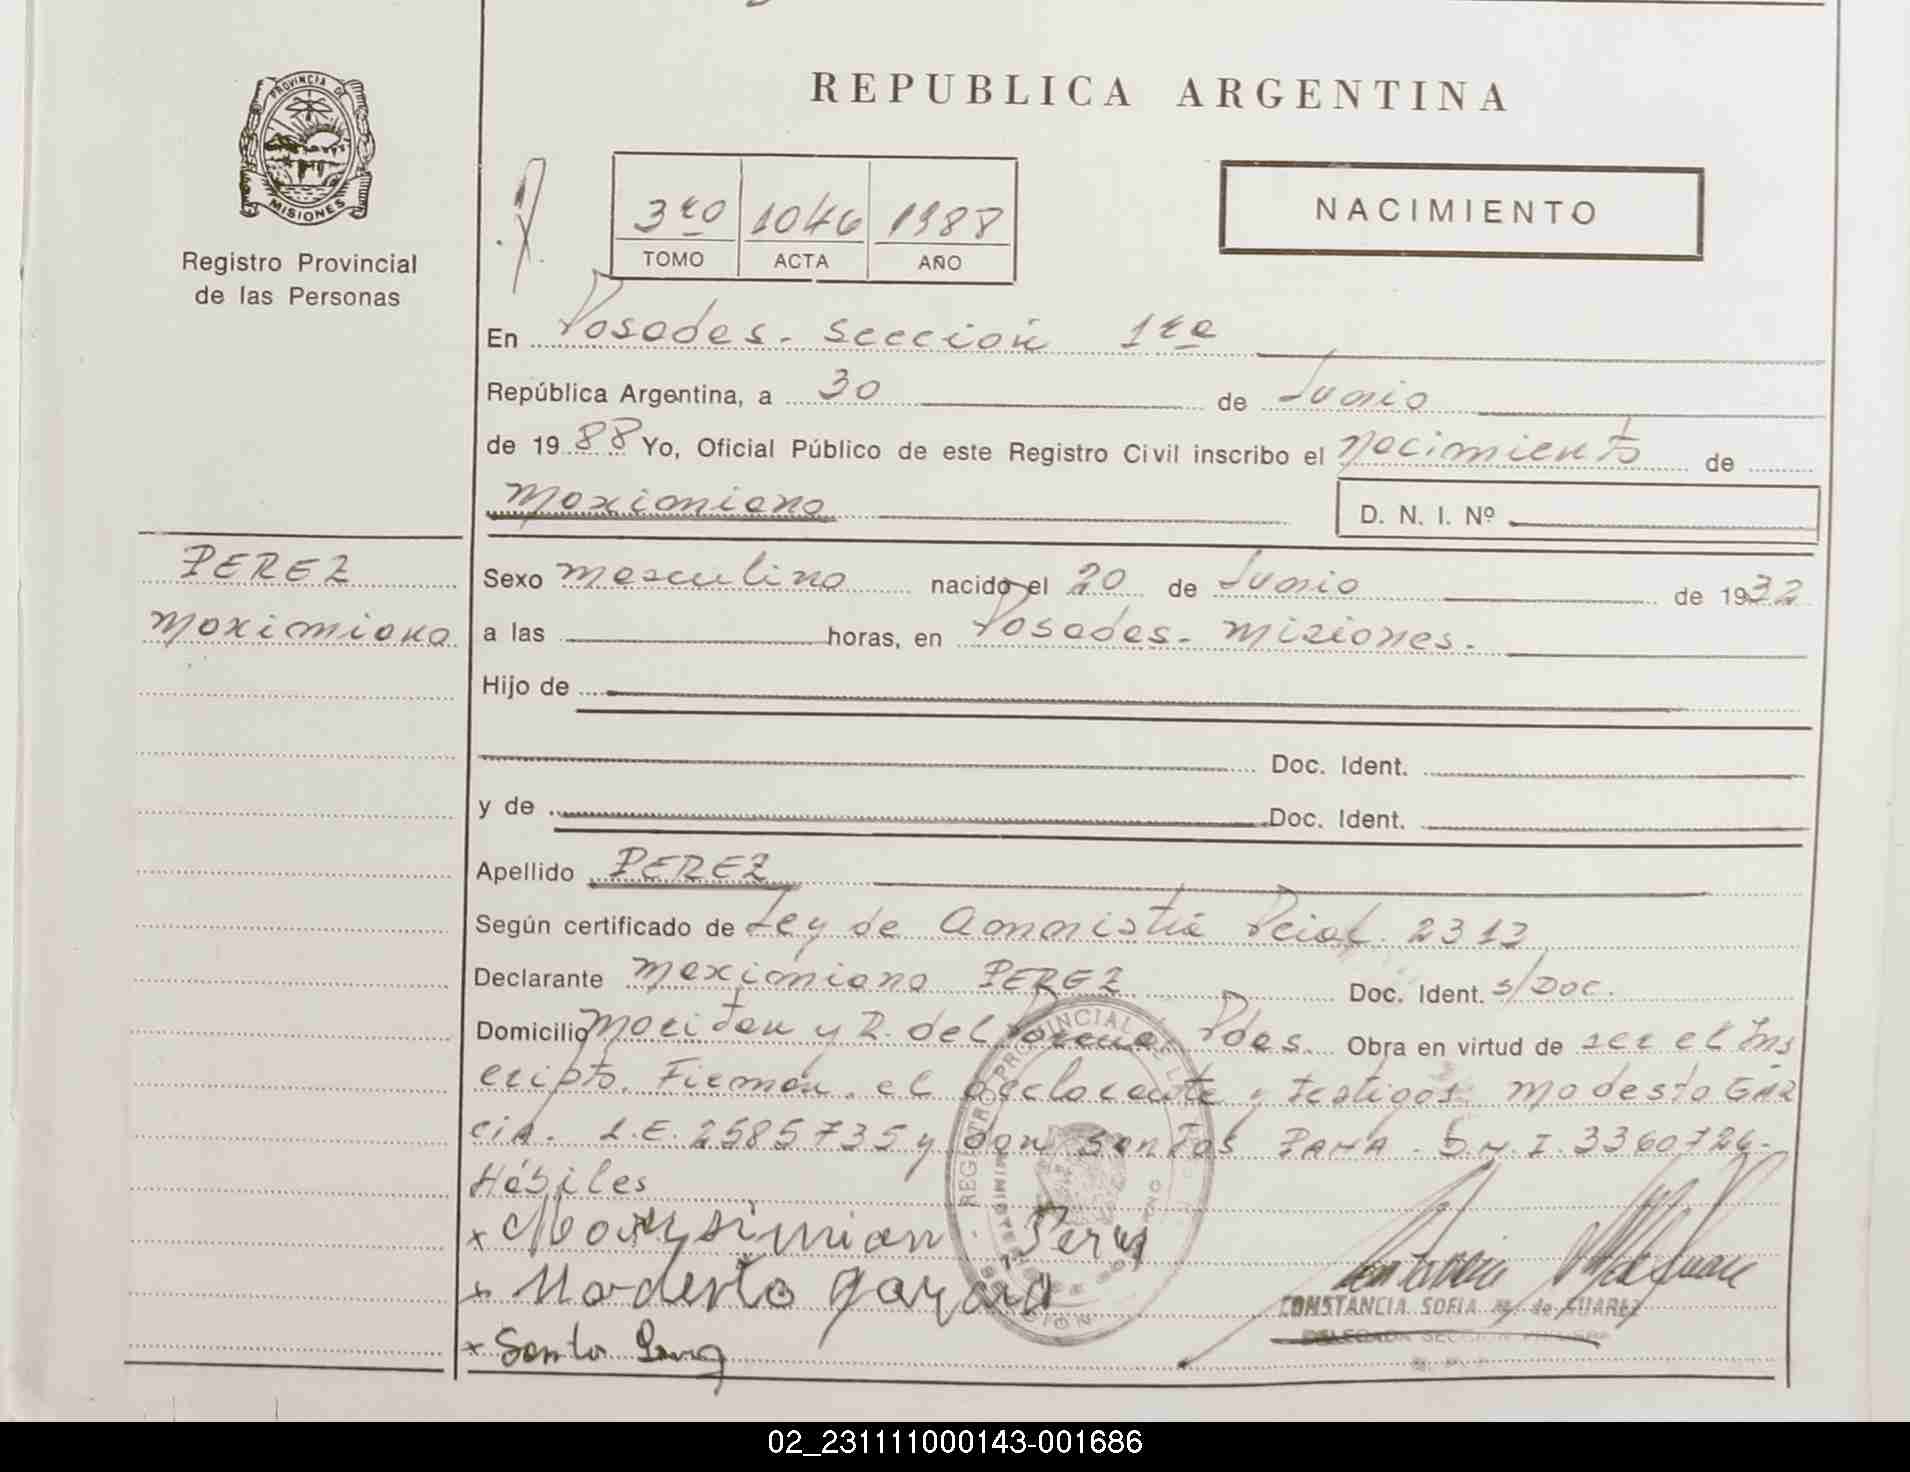 REPUBLICA ARGENTINA
PROVINCIA DE
MISIONES
Registro Provincial
de las Personas
3ro 1046 1988
TOMO ACTA AÑO
NACIMIENTO
En Posadas - Sección 1ra
República Argentina, a 30 de Junio
de 1988 Yo, Oficial Público de este Registro Civil inscribo el nacimiento de
Maximiano D. N. I. Nº
PEREZ
Maximiano
Sexo masculino nacido el 20 de Junio de 1932
a las horas, en Posadas - Misiones.-
Hijo de
Doc. Ident.
y de Doc. Ident.
Apellido PEREZ
Según certificado de Ley de Amnistía Pcial. 2312
Declarante Maximiano PEREZ Doc. Ident. s/Doc.
Domicilio y R. del Pdas. Obra en virtud de ser el Ins
cripto. Firman, el declarante y testigos: Modesto GAR
CIA. L.E. 2585735 y don Santos D.N.I. 3360726-
Hábiles
x Perez
x Modesto
x Santo
CONSTANCIA SOFIA de SUAREZ
DELEGADA SECCION PRIMERA
REGISTRO PROVINCIAL DE LAS
02_231111000143-001686